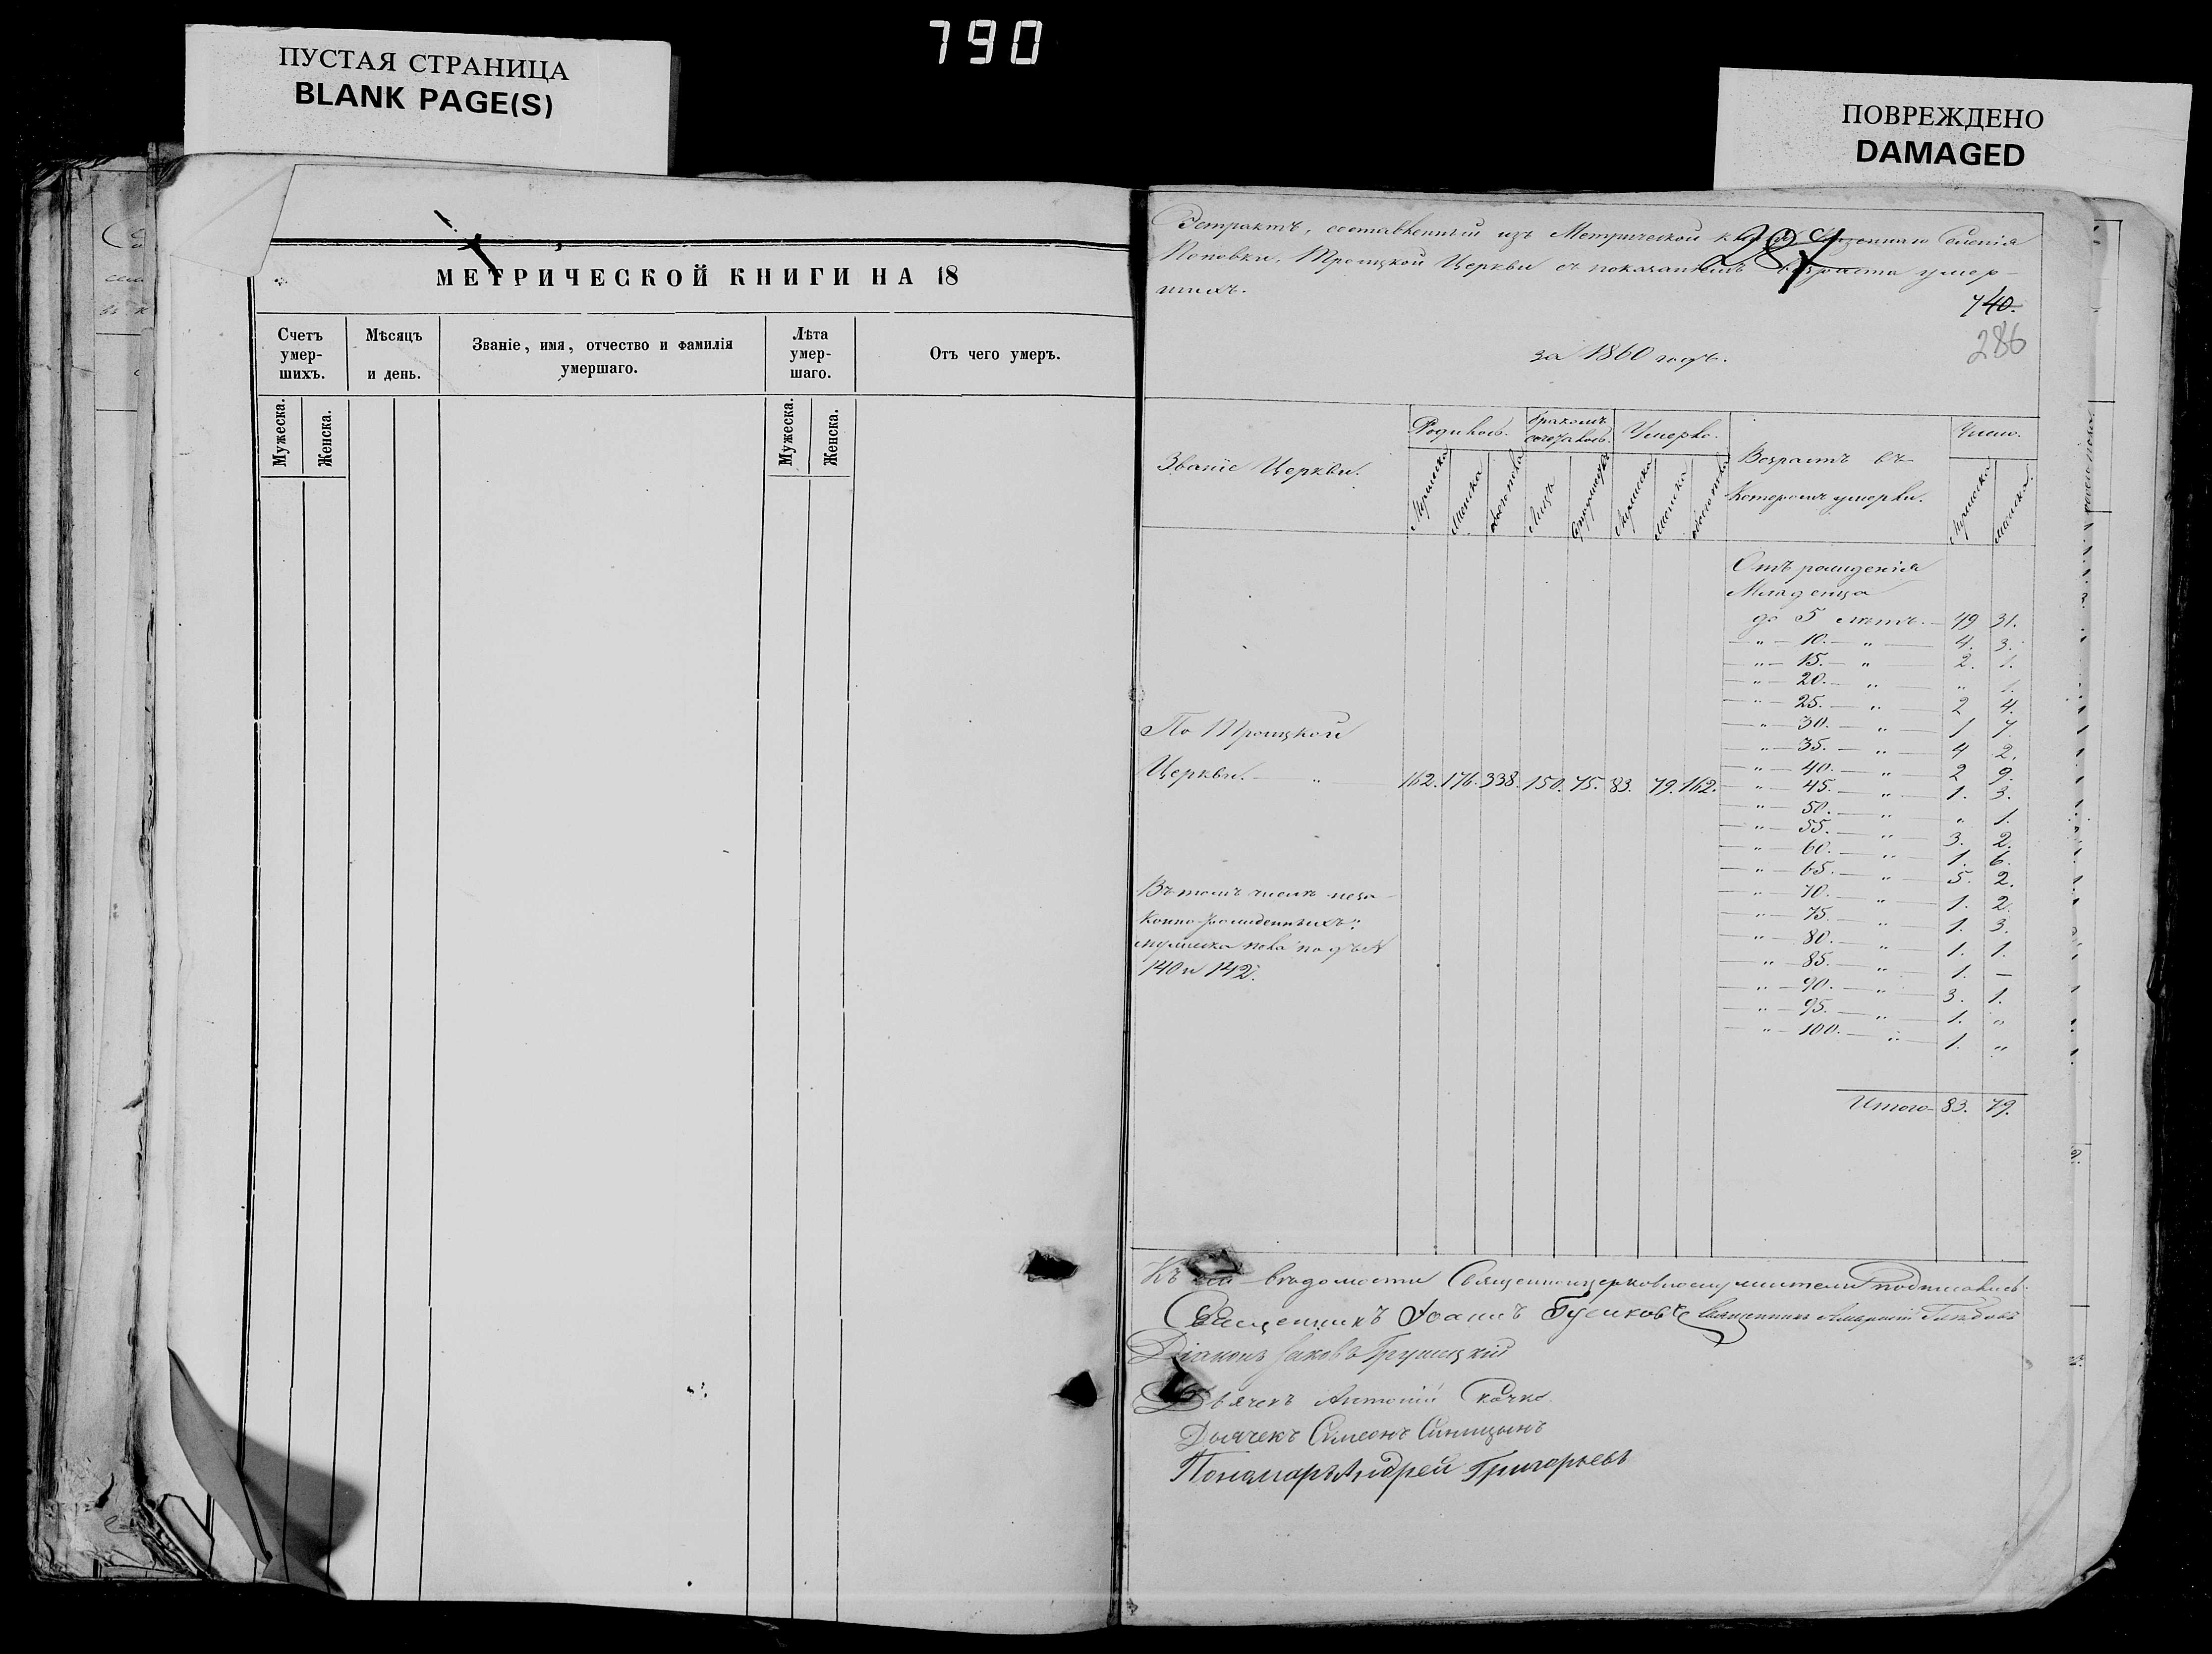 790
ПУСТАЯ СТРАНИЦА
BLANK PAGE(S)
ПОВРЕЖДЕНО
DAMAGED
МЕТРИЧЕСКОЙ КНИГИ НА 18
Счетъ умер- шихъ.
Мѣсяцъ и день.
Званіе, имя, отчество и фамилія умершаго.
Лѣта умер- шаго.
Отъ чего умеръ.
Мужеска. Женска. Мужеска. Женска.
Эстрактъ, составленный изъ Метрической Казеннаго Селенія
Поповки, Троицкой Церкви съ показаніемъ возраста умер-
шихъ.
740.
286
за 1860 годъ.
Званіе Церкви. Родилось. Бракомъ сочеталось. Умерло. Возрастъ въ Которомъ умерли. Число.
Мужеска Женска обоего пола Лицъ Супружествъ Мужеска Женска обоего пола Мужеска Женска
Отъ рожденія
Младенца
до 5 лѣтъ. — 49 31.
" — 10. — " — 4. 3.
" — 15. — " — 2. 1.
" — 20. — " — " 1.
" — 25. — " — 2 4.
" — 30. — " — 1 7.
" — 35. — " — 4 2.
" — 40. — " — 2 9.
" — 45. — " — 1. 3.
" — 50. — " — " 1.
" — 55. — " — 3. 2.
" — 60. — " — 1. 6.
" — 65. — " — 5. 2.
" — 70. — " — 1. 2.
" — 75. — " — 1. 3.
" — 80. — " — 1. 1.
" — 85. — " — 1. —
" — 90. — " — 3. 1.
" — 95. — " — 1. "
" — 100. — " — 1. "
Итого — 83. 79.
По Троицкой
Церкви. — " — 162. 176. 338. 150. 75. 83. 79. 162.
Въ томъ числѣ неза-
конно-рожденныхъ:
мужеска пола подъ №
140 и 142.
Къ сей вѣдомости Священноцерковнослужители подписались:
Священникъ Іоаннъ Гусиковъ Священникъ
Діаконъ Іаковъ Грушецкій
Дьячекъ Антоній
Дьячекъ Симеонъ Синицынъ
Пономарь Андрей Григорьевъ